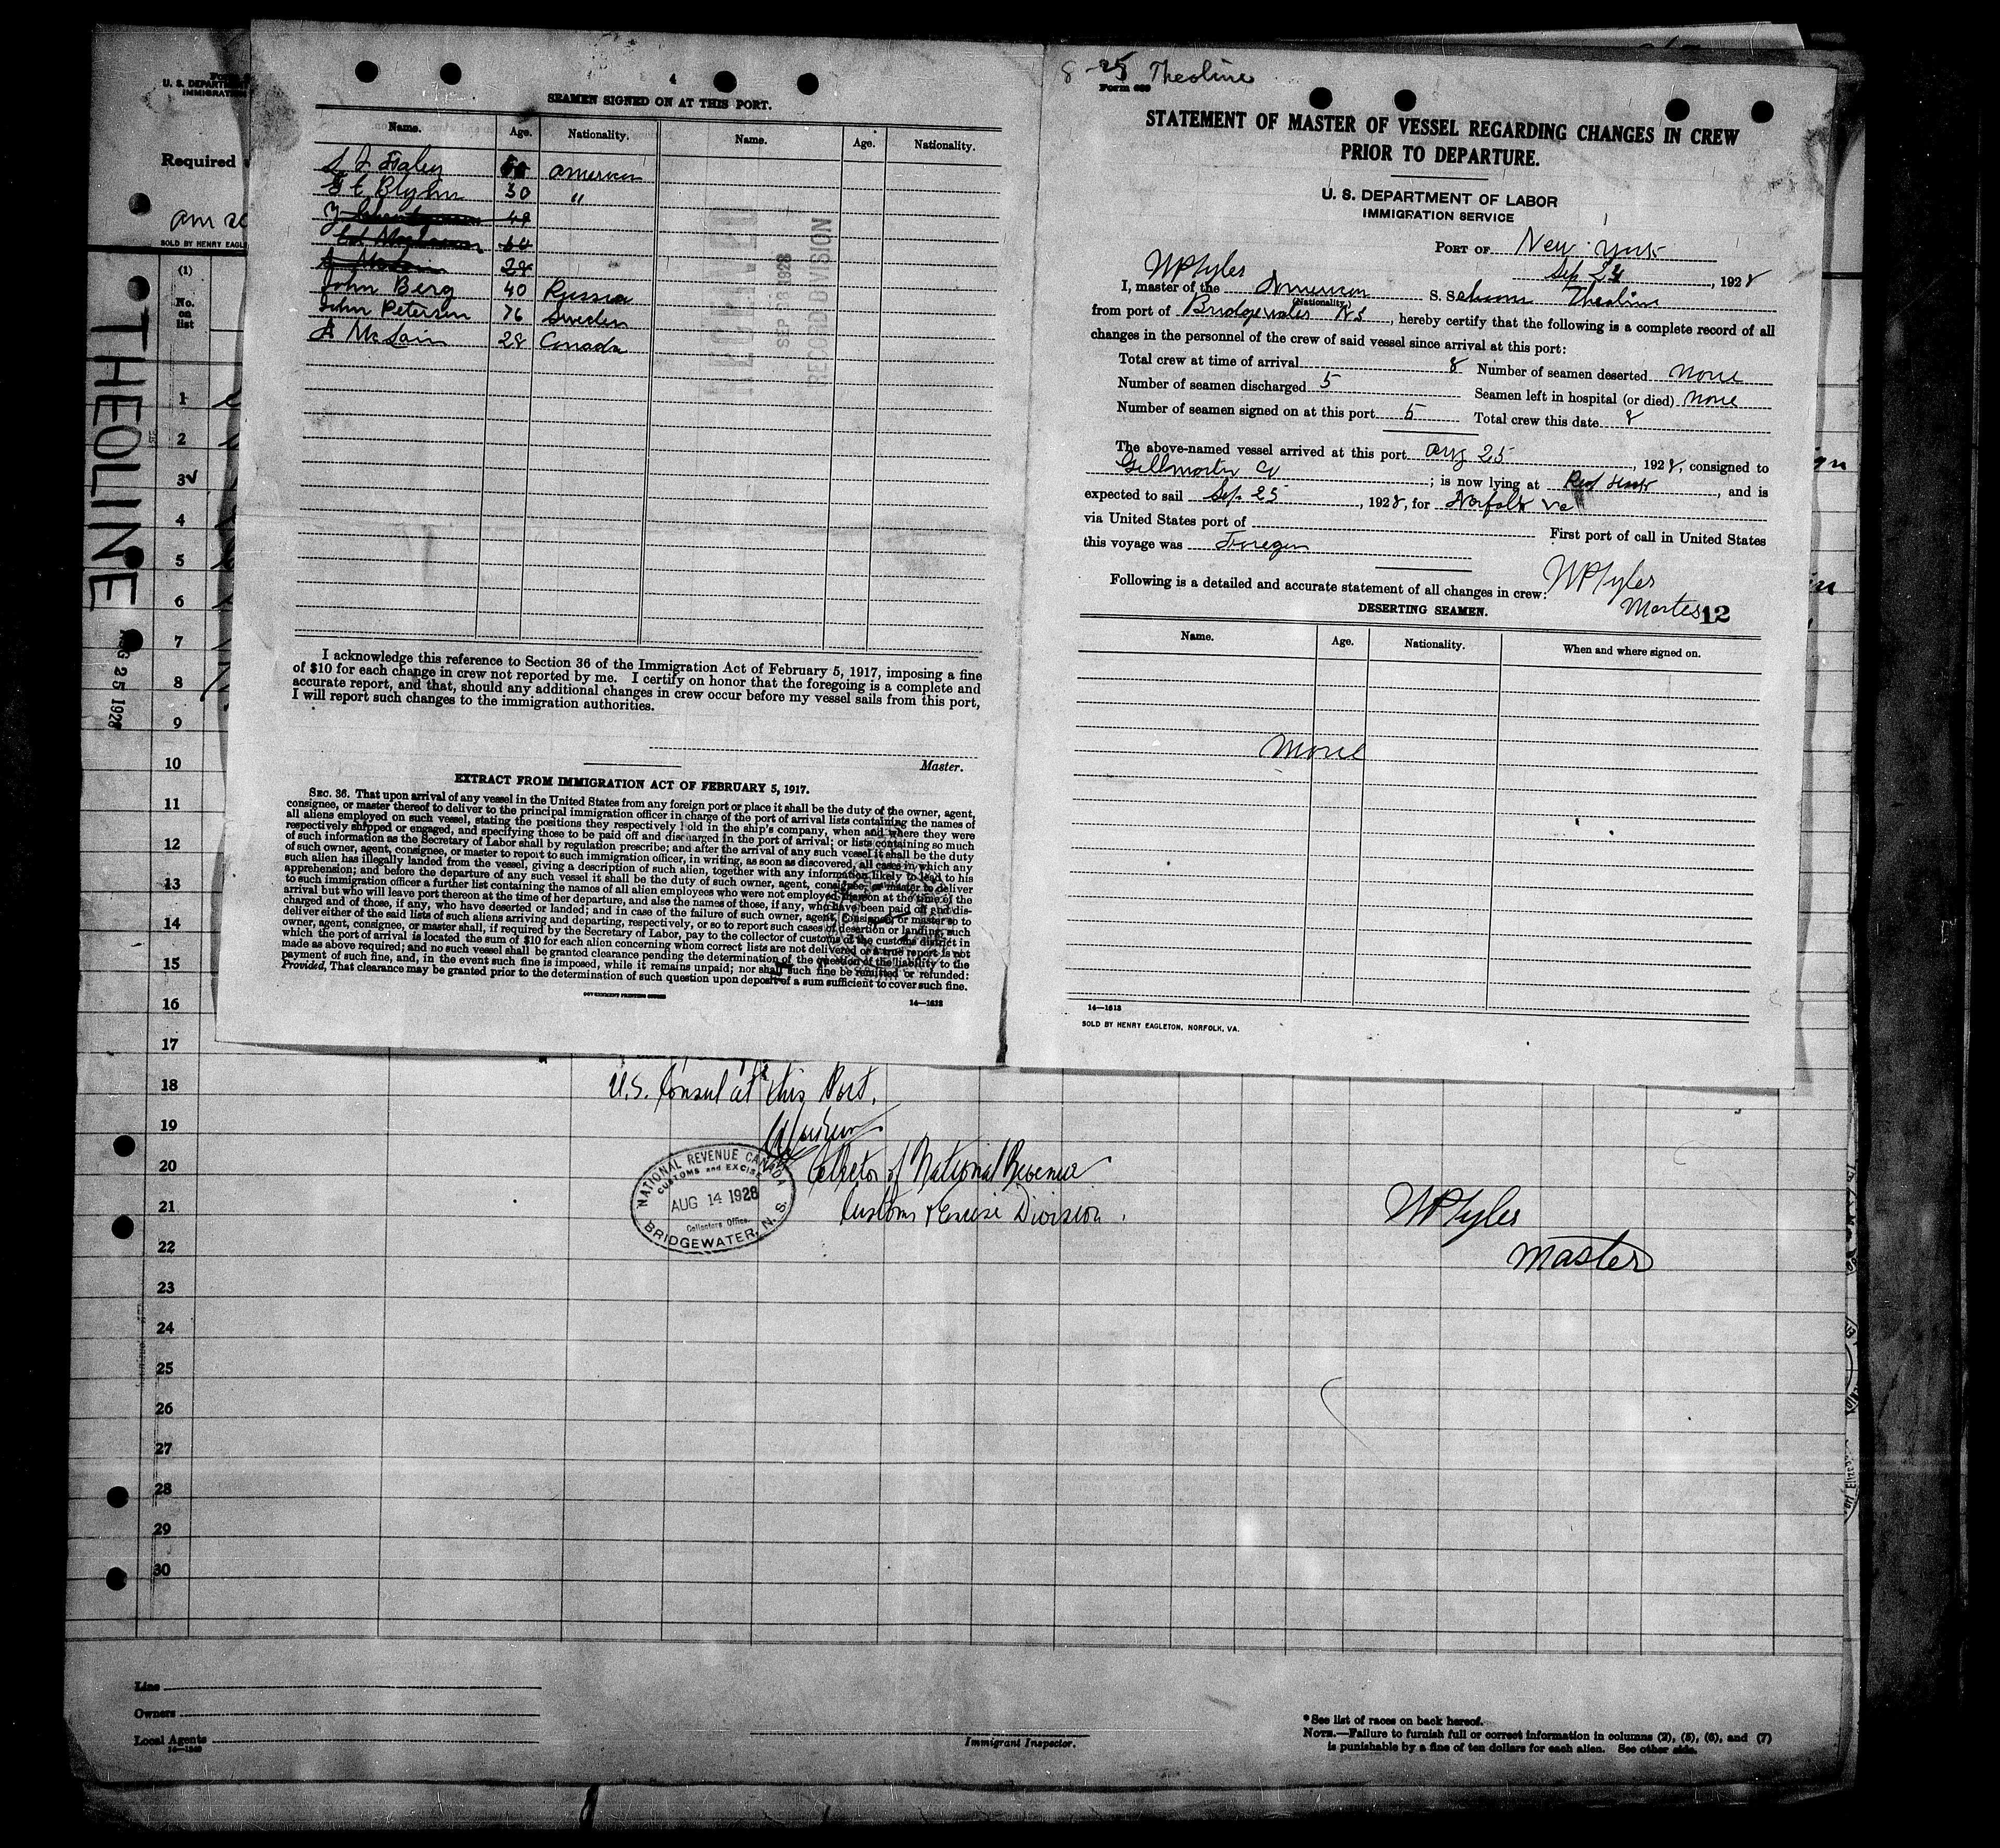 4
SEAMEN SIGNED ON AT THIS PORT.
Name. Age. Nationality. Name. Age. Nationality.
American
30 "
49
60
28
John Berg 40 Russia
John Petersen 76 Sweden
A McLain 28 Canada
SEP 28 1928
RECORD DIVISION
I acknowledge this reference to Section 36 of the Immigration Act of February 5, 1917, imposing a fine
of $10 for each change in crew not reported by me. I certify on honor that the foregoing is a complete and
accurate report, and that, should any additional changes in crew occur before my vessel sails from this port,
I will report such changes to the immigration authorities.
Master.
EXTRACT FROM IMMIGRATION ACT OF FEBRUARY 5, 1917.
SEC. 36. That upon arrival of any vessel in the United States from any foreign port or place it shall be the duty of the owner, agent,
consignee, or master thereof to deliver to the principal immigration officer in charge of the port of arrival lists containing the names of
all aliens employed on such vessel, stating the positions they respectively hold in the ship's company, when and where they were
respectively shipped or engaged, and specifying those to be paid off and discharged in the port of arrival; or lists containing so much
of such information as the Secretary of Labor shall by regulation prescribe; and after the arrival of any such vessel it shall be the duty
of such owner, agent, consignee, or master to report to such immigration officer, in writing, as soon as discovered, all cases in which any
such alien has illegally landed from the vessel, giving a description of such alien, together with any information likely to lead to his
apprehension; and before the departure of any such vessel it shall be the duty of such owner, agent, consignee, or master to deliver
to such immigration officer a further list containing the names of all alien employees who were not employed thereon at the time of the
arrival but who will leave port thereon at the time of her departure, and also the names of those, if any, who have been paid off and dis-
charged and of those, if any, who have deserted or landed; and in case of the failure of such owner, agent, consignee, or master so to
deliver either of the said lists of such aliens arriving and departing, respectively, or so to report such cases of desertion or landing, such
owner, agent, consignee, or master shall, if required by the Secretary of Labor, pay to the collector of customs of the customs district in
which the port of arrival is located the sum of $10 for each alien concerning whom correct lists are not delivered or a true report is not
made as above required; and no such vessel shall be granted clearance pending the determination of the question of the liability to the
payment of such fine, and, in the event such fine is imposed, while it remains unpaid; nor shall such fine be remitted or refunded:
Provided, That clearance may be granted prior to the determination of such question upon deposit of a sum sufficient to cover such fine.
GOVERNMENT PRINTING OFFICE
14—1638
8-25 Theoline
Form 689
STATEMENT OF MASTER OF VESSEL REGARDING CHANGES IN CREW
PRIOR TO DEPARTURE.
U. S. DEPARTMENT OF LABOR
IMMIGRATION SERVICE
PORT OF New York
Sep 24, 1928
WP Tyles
I, master of the American S. S. Theoline
(Nationality.)
from port of Bridgewater NS, hereby certify that the following is a complete record of all
changes in the personnel of the crew of said vessel since arrival at this port:
Total crew at time of arrival 8 Number of seamen deserted None
Number of seamen discharged 5 Seamen left in hospital (or died) None
Number of seamen signed on at this port 5 Total crew this date 8
The above-named vessel arrived at this port Aug 25, 1928, consigned to
Co; is now lying at Red Hook, and is
expected to sail Sep. 25, 1928, for Norfolk Va
via United States port of First port of call in United States
this voyage was Foreign
Following is a detailed and accurate statement of all changes in crew: WP Tyles
Master 12
DESERTING SEAMEN.
Name. Age. Nationality. When and where signed on.
None
14—1613
SOLD BY HENRY EAGLETON, NORFOLK, VA.
U. S. DEPARTM
IMMIGRATION
Required
SOLD BY HENRY EAGLE
(1)
No.
on
list
THEOLINE
AUG 25 1928
1
2
3
4
5
6
7
8
9
10
11
12
13
14
15
16
17
18
19
20
21
22
23
24
25
26
27
28
29
30
U.S. Consul at this Port.
Collector of National Revenue
Customs & Excise Division.
NATIONAL REVENUE CANADA
CUSTOMS and EXCISE
AUG 14 1928
Collectors Office
BRIDGEWATER, N. S.
WP Tyles
Master
Line
Owners
Local Agents
Immigrant Inspector.
* See list of races on back hereof.
NOTE.—Failure to furnish full or correct information in columns (2), (5), (6), and (7)
is punishable by a fine of ten dollars for each alien. See other side.